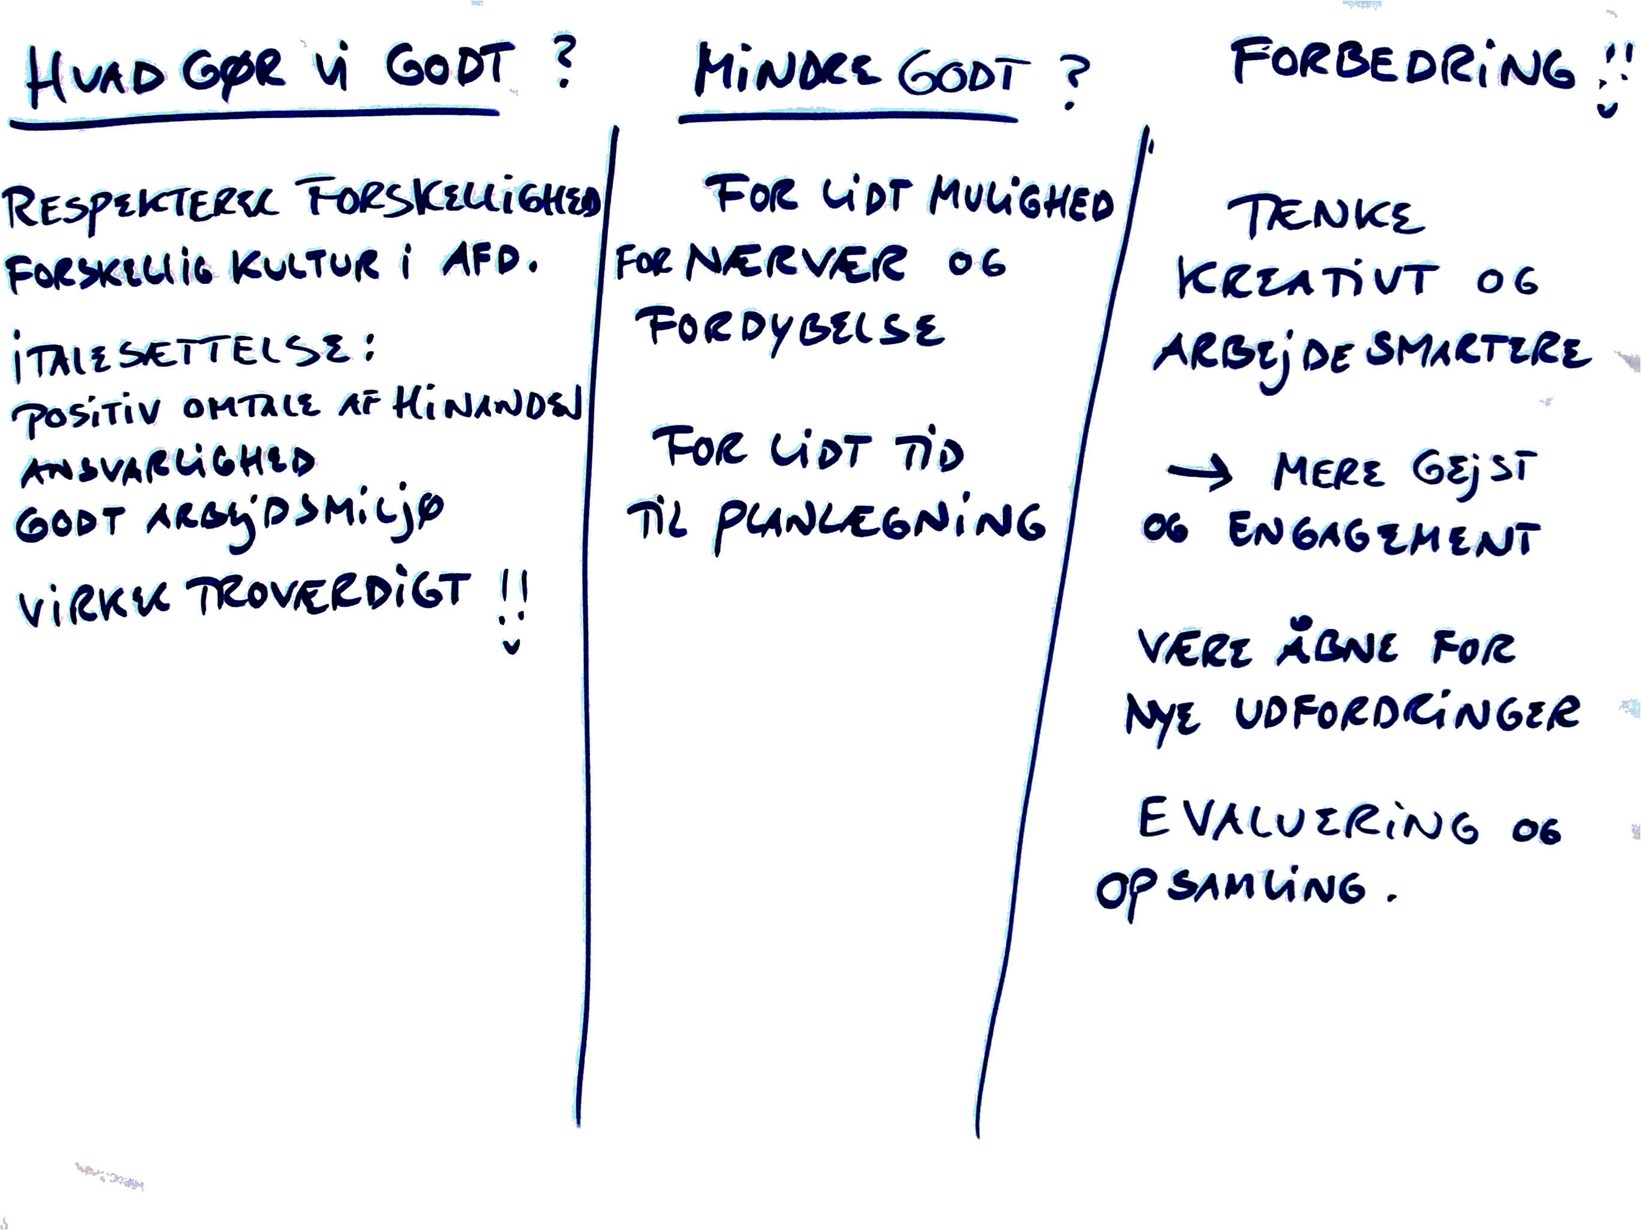 HVAD GØR Vi GODT ?
RESPEKTERER FORSKELLiGHED
FORSKELLiG KULTUR i AFD.
iTALESÆTTELSE:
POSiTiV OMTALE AF HiNANDEN
ANSVARLiGHED
GODT ARBEjDSMiLjØ
ViRKER TROVÆRDiGT !!
MiNDRE GODT ?
FOR LiDT MULiGHED
FOR NÆRVÆR OG
FORDYBELSE
FOR LiDT TiD
TiL PLANLÆGNiNG
FORBEDRiNG !!
TÆNKE
KREATiVT OG
ARBEjDE SMARTERE
→ MERE GEjST
OG ENGAGEMENT
VÆRE ÅBNE FOR
NYE UDFORDRiNGER
EVALUERiNG OG
OPSAMLiNG.